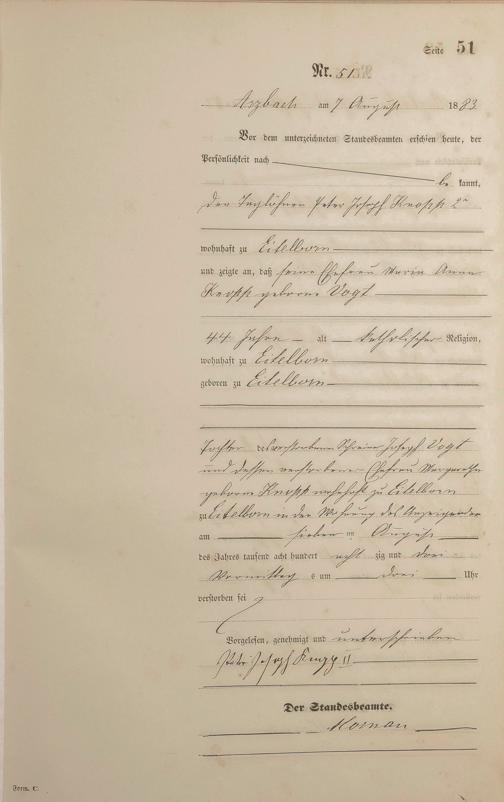 Seite 51
Nr. 51
Arzbach am 7 August 1883
Vor dem unterzeichneten Standesbeamten erschien heute, der
Persönlichkeit nach
be kannt,
der Taglöhner Peter Joseph Knopp 2r
wohnhaft zu Eitelborn
und zeigte an, daß seine Ehefrau Maria Anna
Knopp geborne Vogt
44 Jahre alt katholischer Religion,
wohnhaft zu Eitelborn
geboren zu Eitelborn
Tochter des verstorbenen Schreiner Joseph Vogt
und dessen verstorbene Ehefrau Margaretha
geborne Knopp wohnhaft zu Eitelborn
zu Eitelborn in der Wohnung des Anzeigenden
am sieben ten August
des Jahres tausend acht hundert acht zig und drei
Vormittag s um drei Uhr
verstorben sei
Vorgelesen, genehmigt und unterschrieben
Peter Joseph Knopp II
Der Standesbeamte.
Form. C.